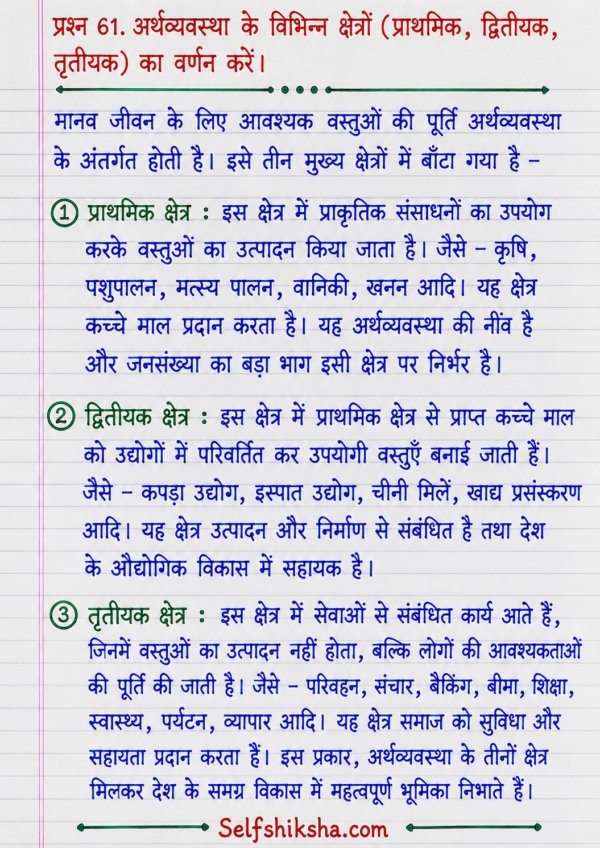 प्रश्न 61. अर्थव्यवस्था के विभिन्न क्षेत्रों (प्राथमिक, द्वितीयक,
तृतीयक) का वर्णन करें।
मानव जीवन के लिए आवश्यक वस्तुओं की पूर्ति अर्थव्यवस्था
के अंतर्गत होती है। इसे तीन मुख्य क्षेत्रों में बाँटा गया है –
① प्राथमिक क्षेत्र : इस क्षेत्र में प्राकृतिक संसाधनों का उपयोग
करके वस्तुओं का उत्पादन किया जाता है। जैसे – कृषि,
पशुपालन, मत्स्य पालन, वानिकी, खनन आदि। यह क्षेत्र
कच्चे माल प्रदान करता है। यह अर्थव्यवस्था की नींव है
और जनसंख्या का बड़ा भाग इसी क्षेत्र पर निर्भर है।
② द्वितीयक क्षेत्र : इस क्षेत्र में प्राथमिक क्षेत्र से प्राप्त कच्चे माल
को उद्योगों में परिवर्तित कर उपयोगी वस्तुएँ बनाई जाती हैं।
जैसे – कपड़ा उद्योग, इस्पात उद्योग, चीनी मिलें, खाद्य प्रसंस्करण
आदि। यह क्षेत्र उत्पादन और निर्माण से संबंधित है तथा देश
के औद्योगिक विकास में सहायक है।
③ तृतीयक क्षेत्र : इस क्षेत्र में सेवाओं से संबंधित कार्य आते हैं,
जिनमें वस्तुओं का उत्पादन नहीं होता, बल्कि लोगों की आवश्यकताओं
की पूर्ति की जाती है। जैसे – परिवहन, संचार, बैकिंग, बीमा, शिक्षा,
स्वास्थ्य, पर्यटन, व्यापार आदि। यह क्षेत्र समाज को सुविधा और
सहायता प्रदान करता हैं। इस प्रकार, अर्थव्यवस्था के तीनों क्षेत्र
मिलकर देश के समग्र विकास में महत्वपूर्ण भूमिका निभाते हैं।
Selfshiksha.com